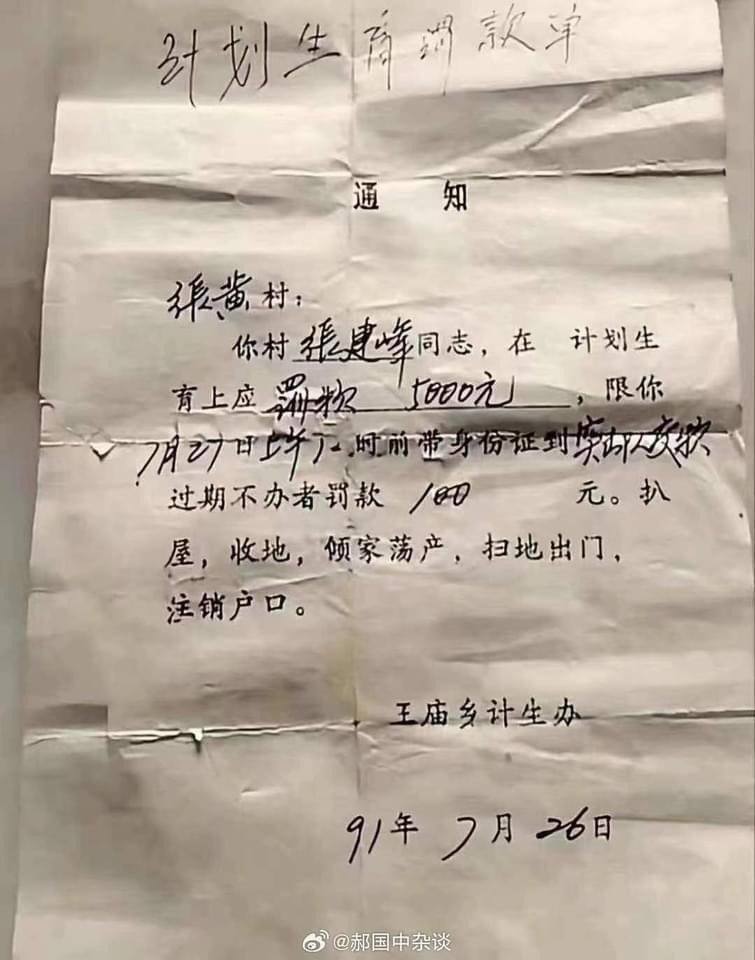 计划生育罚款单
通知
張黄村：
你村張建峰同志，在 计划生
育上应罚款 5000元，限你
7月27日上午12时前带身份证到突击队交款
过期不办者罚款 100 元。扒
屋，收地，倾家荡产，扫地出门，
注销户口。
王庙乡计生办
91年7月26日
@郝国中杂谈